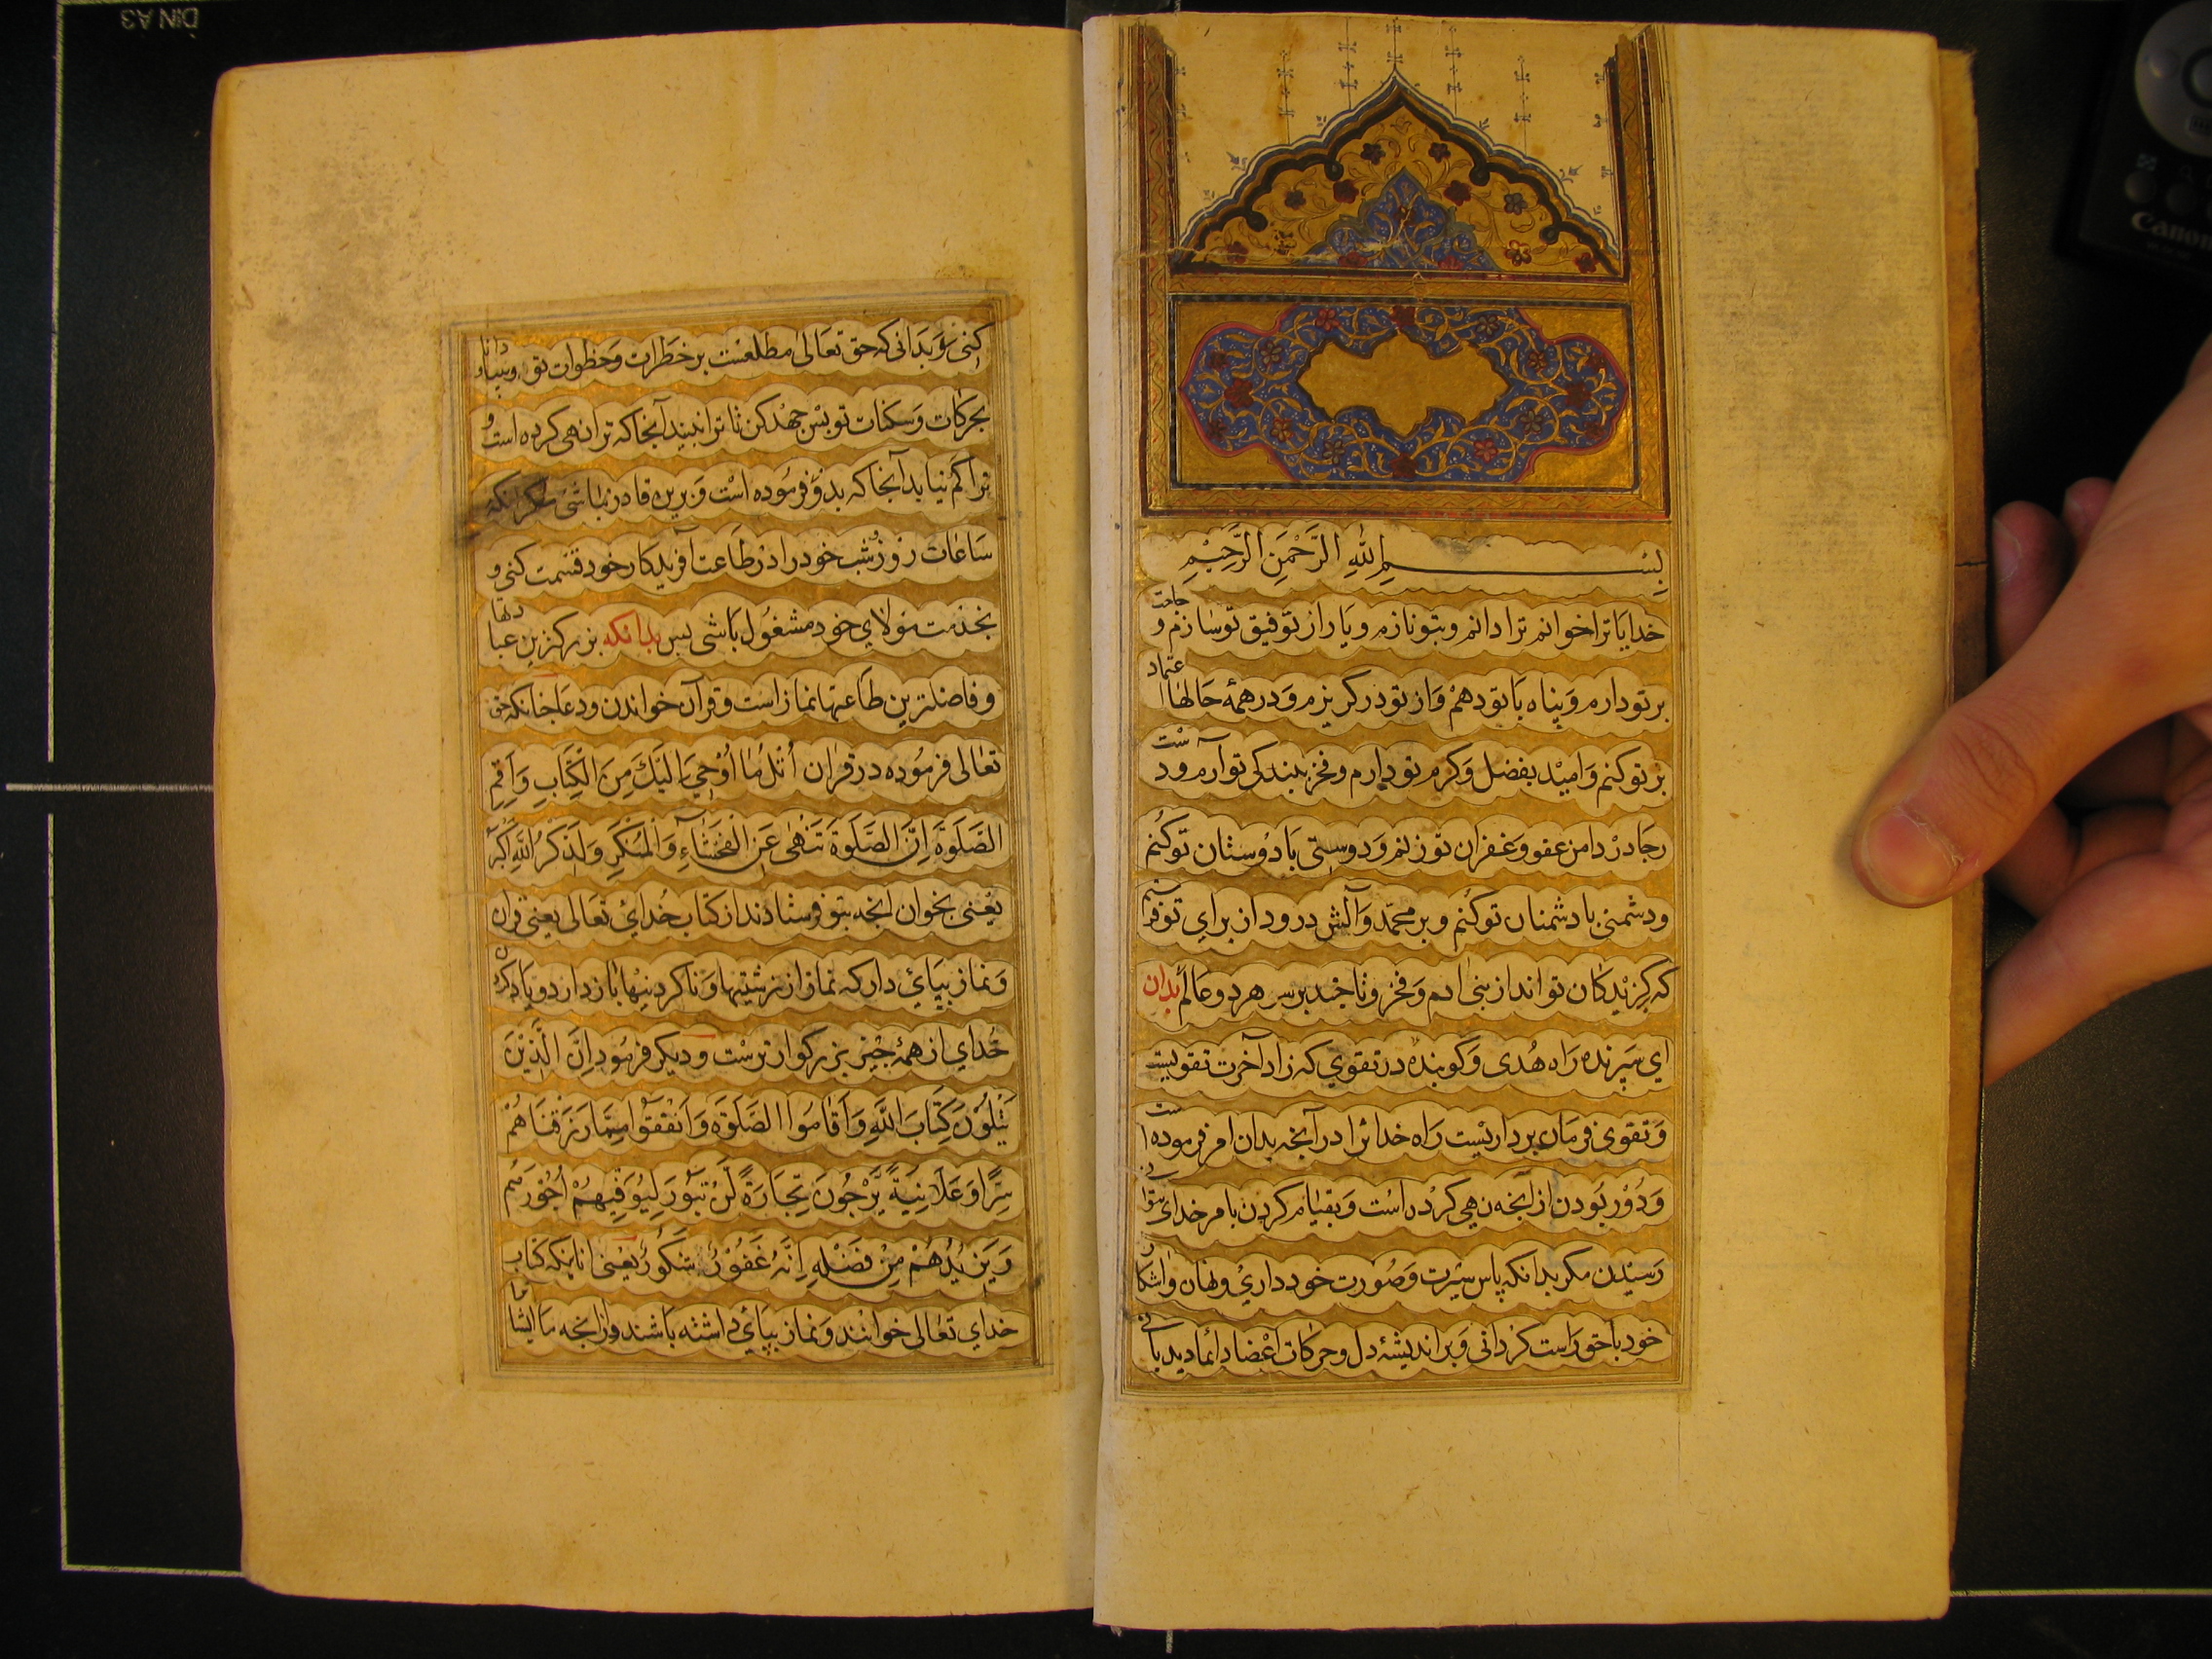 بِسْمِ اللهِ الرَّحْمَنِ الرَّحِيْمِ
خدایا ترا خوانم ترا دانم و بتو نازم و یاراز توفیق تو سازم و حاجت
بر تو دارم و پناه با تو دهم و از تو در کریزم و در همهٔ حالها اعتماد
بر تو کنم و امید بفضل و کرم تو دارم و فخر ببندکی تو آرم و دست
رجا در دامن عفو و غفران تو زنم و دوستی با دوستان تو کنم
و دشمنی با دشمنان تو کنم و بر محمد و آلش درود از برای تو فرستم
که کزیدکان تو اند از بنی ادم و فخر و تاجند بر سر هر دو عالم بدان
ای سپرنده راه هدی و کوینده در تقوی که زاد آخرت تقویست
و تقوی فرمان برداریست راه خدایرا در آنچه بدان امر فرموده است
و دور بودن از آنچه نهی کرده است و بقیام کردن بامر خدای نتوان
رسیدن مکر بدانکه پاس سیرت و صورت خود داری و نهان و اشکار
خود با حق راست کردانی و بر اندیشهٔ دل و حرکات اعضا دائما دیدبانی
کنی و بدانی که حق تعالی مطلعست بر خطرات و خطوات تو و بینا و دانا
بحرکات و سکنات تو بس جهد کن تا ترا نبیند آنجا که ترا نهی کرده است و
ترا کم نیابد آنجا که بدو فرموده است و برین قادر نباشی مکر انکه
ساعات روز و شب خود را در طاعت آفریدکار خود قسمت کنی و
بخذمت مولای خود مشغول باشی بس بدانکه بزرکترین عبادتها
و فاضلترین طاعتها نماز است و قرآن خواندن و دعا چنانکه حق
تعالی فرموده در قران أتل ما أوحي إليك من الكتاب وأقم
الصَّلوةَ إِنَّ الصَّلوةَ تَنْهى عَنِ الْفَحْشَاءِ وَالْمُنْكَرِ وَلَذِكْرُ اللهِ أَكْبَرُ
یعنی بخوان آنچه بتو فرستادند از کتاب خدای تعالی یعنی قران
و نماز بپای دار که نماز از زشتیها و ناکردنیها باز دارد و یاد کردن
خدای از همهٔ چیز بزرکوارترست و دیکر فرمود إِنَّ الَّذِيْنَ
يَتْلُوْنَ كِتَابَ اللهِ وَأَقَامُوا الصَّلوةَ وَأَنْفَقُوْا مِمَّا رَزَقْنَاهُمْ
سِرًّا وَعَلَانِيَةً يَّرْجُونَ تِجَارَةً لَنْ تَبُوْرَ لِيُوَفِّيَهُمْ أُجُوْرَهُمْ
وَيَزِيْدَهُمْ مِنْ فَضْلِهِ إِنَّهُ غَفُوْرٌ شَكُوْرٌ یعنی انانکه کتاب
خدای تعالی خوانند و نماز بپای داشته باشند و از آنچه ما ایشانرا